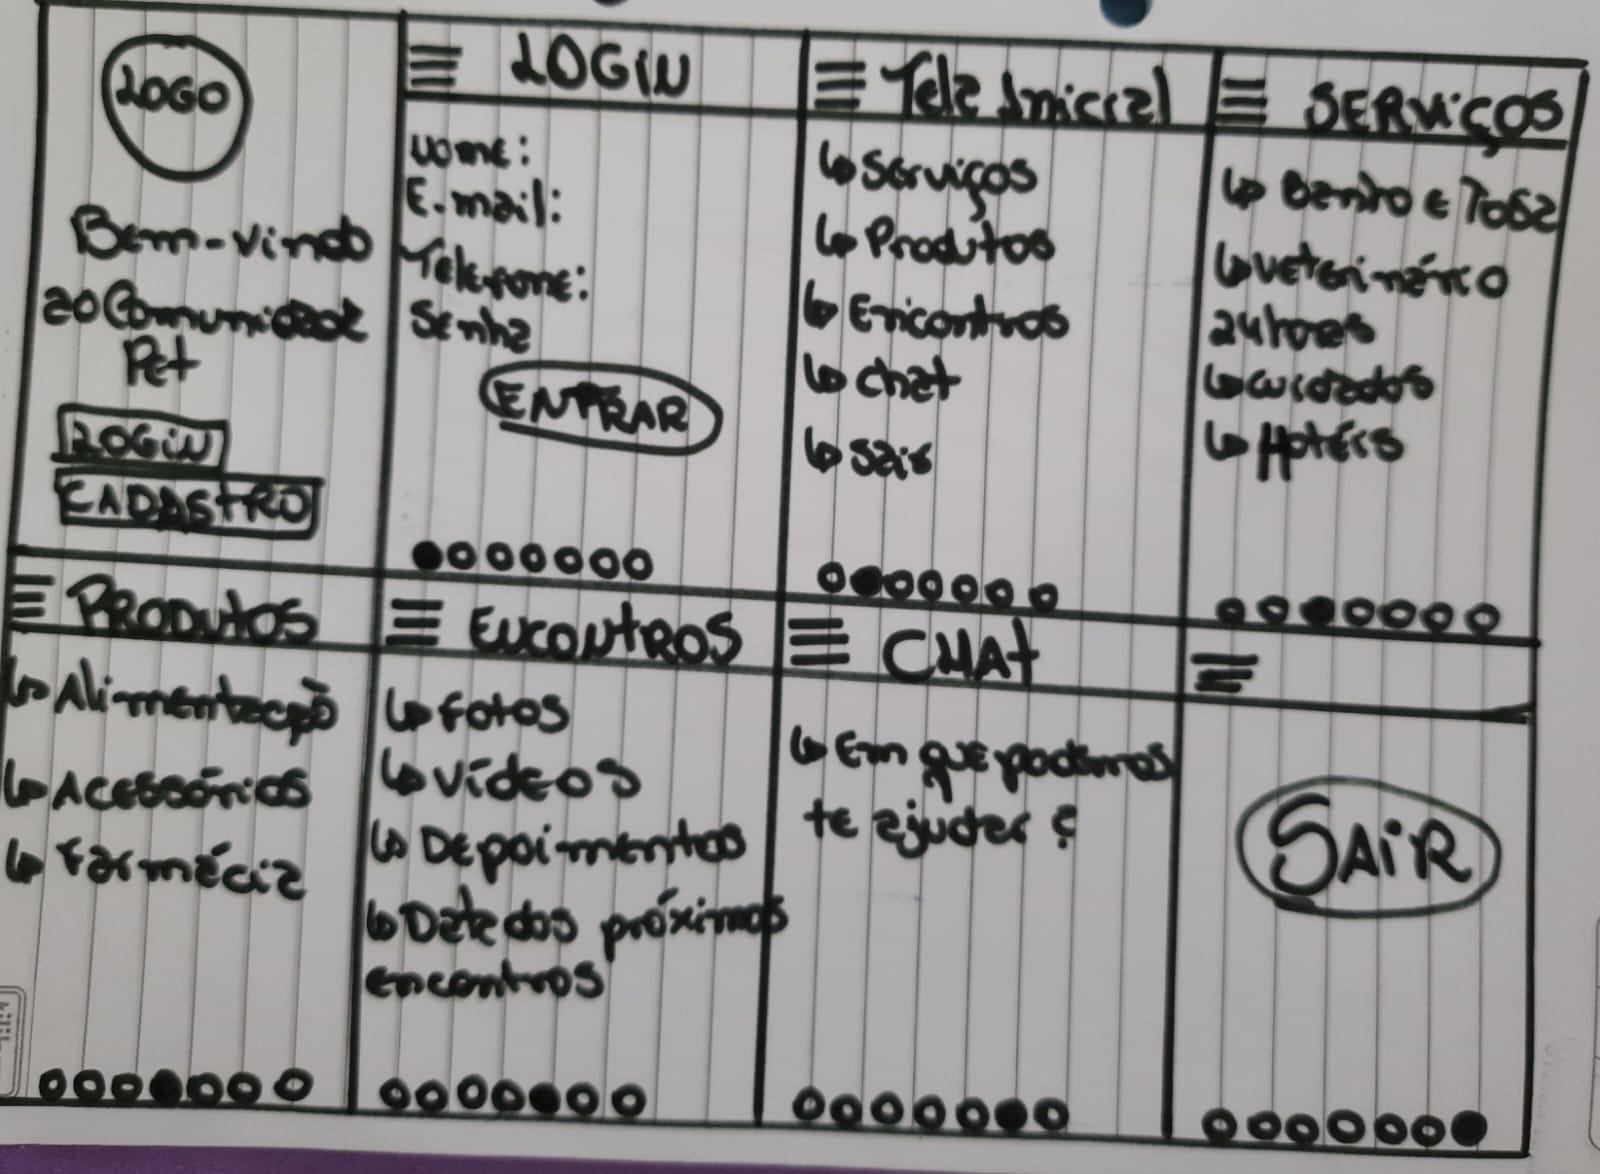 LOGO
Bem-vindo
ao Comunidade
Pet
LOGIN
CADASTRO
LOGIN
Nome:
E-mail:
Telefone:
Senha
ENTRAR
Tela Inicial
↳ Serviços
↳ Produtos
↳ Encontros
↳ Chat
↳ Sair
SERVIÇOS
↳ Banho e Tosa
↳ Veterinário
24 horas
↳ Cuidados
↳ Hotéis
PRODUTOS
↳ Alimentação
↳ Acessórios
↳ Farmácia
ENCONTROS
↳ Fotos
↳ Vídeos
↳ Depoimentos
↳ Data dos próximos
encontros
CHAT
↳ Em que podemos
te ajudar ?
SAIR